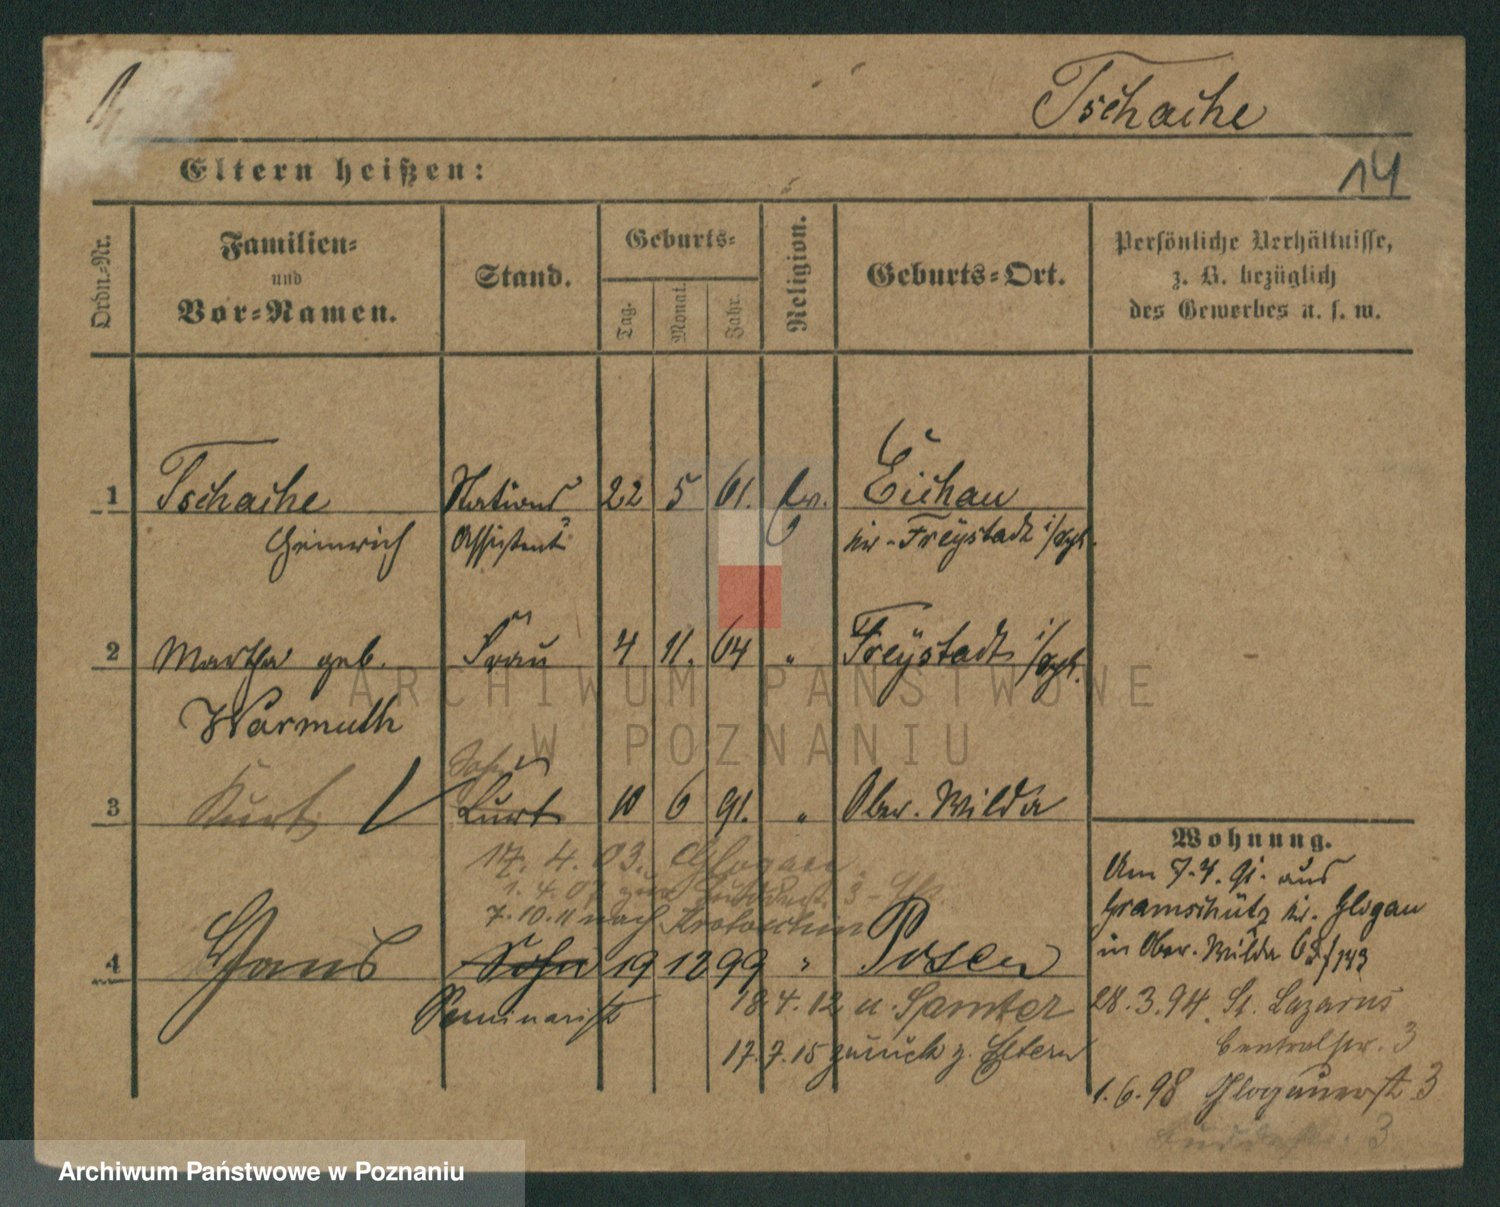 Tschache
14
Eltern heißen:
Ordn.-Nr.
Familien- und Vor-Namen.
Stand.
Geburts-
Tag.
Monat.
Jahr.
Religion.
Geburts-Ort.
Persönliche Verhältnisse,
z. B. bezüglich
des Gewerbes u. s. w.
1 Tschache Stations 22 5 61. ev. Eichau
Heinrich Assistent Kr. Freystadt i/Schl.
2 Martha geb. Frau 4 11. 64 " Freystadt i/Schl.
Warmuth
ARCHIWUM PAŃSTWOWE
W POZNANIU
Sohn
3 Kurt Kurt 10 6 91. " Ober. Wilda
17. 4. 03. Glogau.
7.10.11 nach Krotoschin
4 Hans Sohn 19 12 99 " Posen
Seminarist 18.4.12 n. Samter
17.7.15 zurück z. Eltern
Wohnung.
Am 7.4.91. aus
Gramschütz Kr. Glogau
in Ober. Wilda
28.3.94. St. Lazarus
Centralstr. 3
1.6.98 Glogauerst 3
3
Archiwum Państwowe w Poznaniu